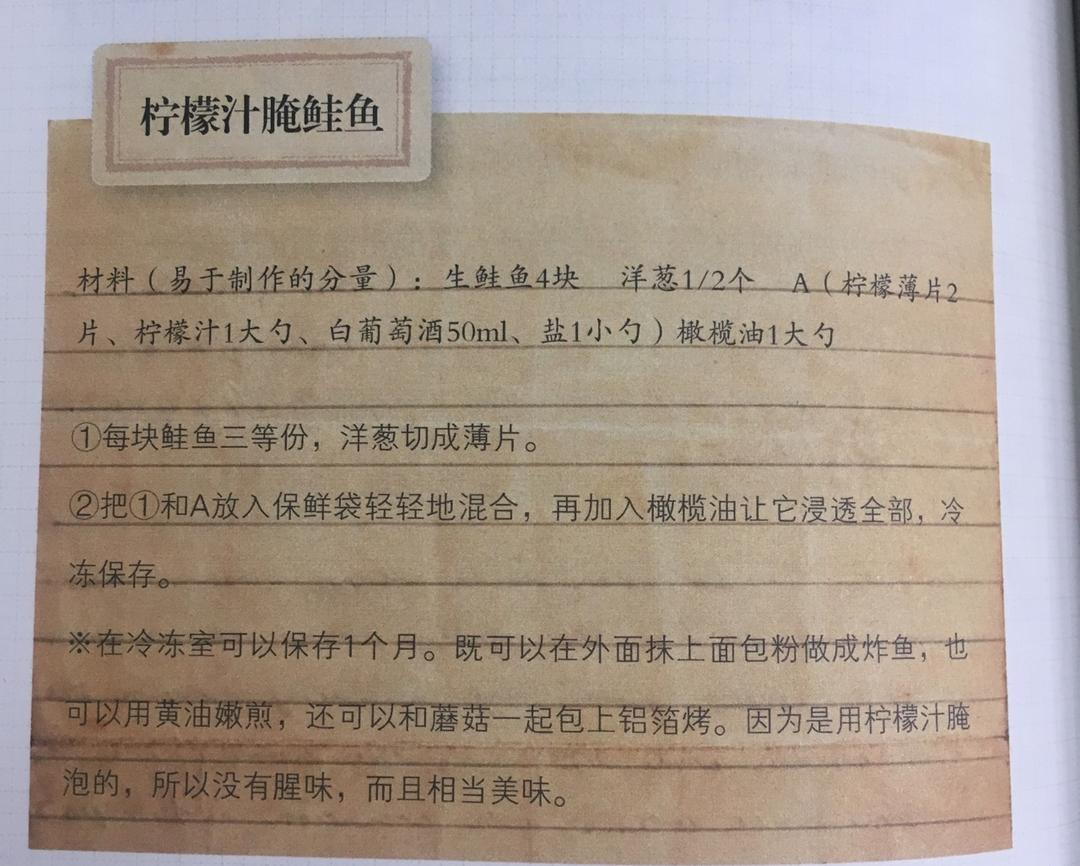 柠檬汁腌鲑鱼
材料（易于制作的分量）：生鲑鱼4块 洋葱1/2个 A（柠檬薄片2
片、柠檬汁1大勺、白葡萄酒50ml、盐1小勺）橄榄油1大勺
①每块鲑鱼三等份，洋葱切成薄片。
②把①和A放入保鲜袋轻轻地混合，再加入橄榄油让它浸透全部，冷
冻保存。
※在冷冻室可以保存1个月。既可以在外面抹上面包粉做成炸鱼，也
可以用黄油嫩煎，还可以和蘑菇一起包上铝箔烤。因为是用柠檬汁腌
泡的，所以没有腥味，而且相当美味。